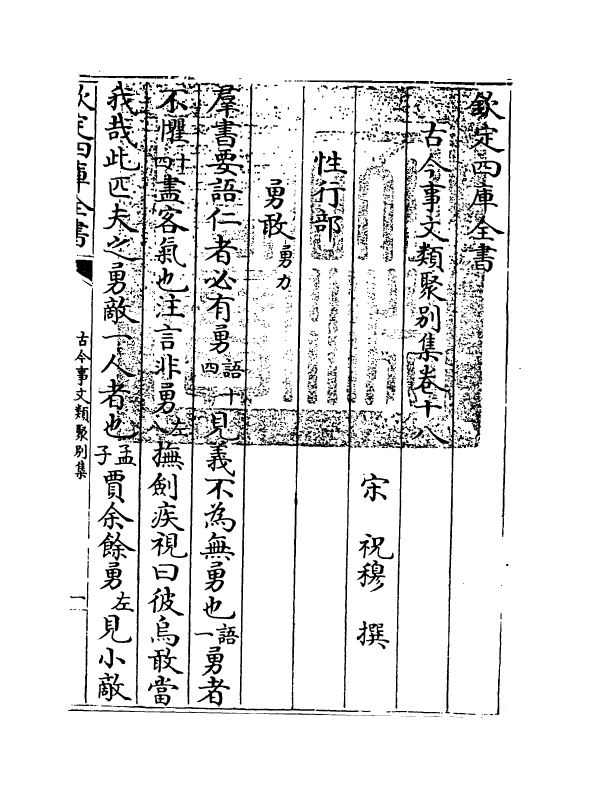 欽定四庫全書
古今事文類聚別集卷十八
宋 祝穆 撰
性行部
勇敢勇力
羣書要語仁者必有勇語十四見義不為無勇也語一勇者
不懼廿四盡客氣也注言非勇左八撫劍疾視曰彼烏敢當
我哉此匹夫之勇敵一人者也孟子賈余餘勇左見小敵
欽定四庫全書
古今事文類聚別集
一